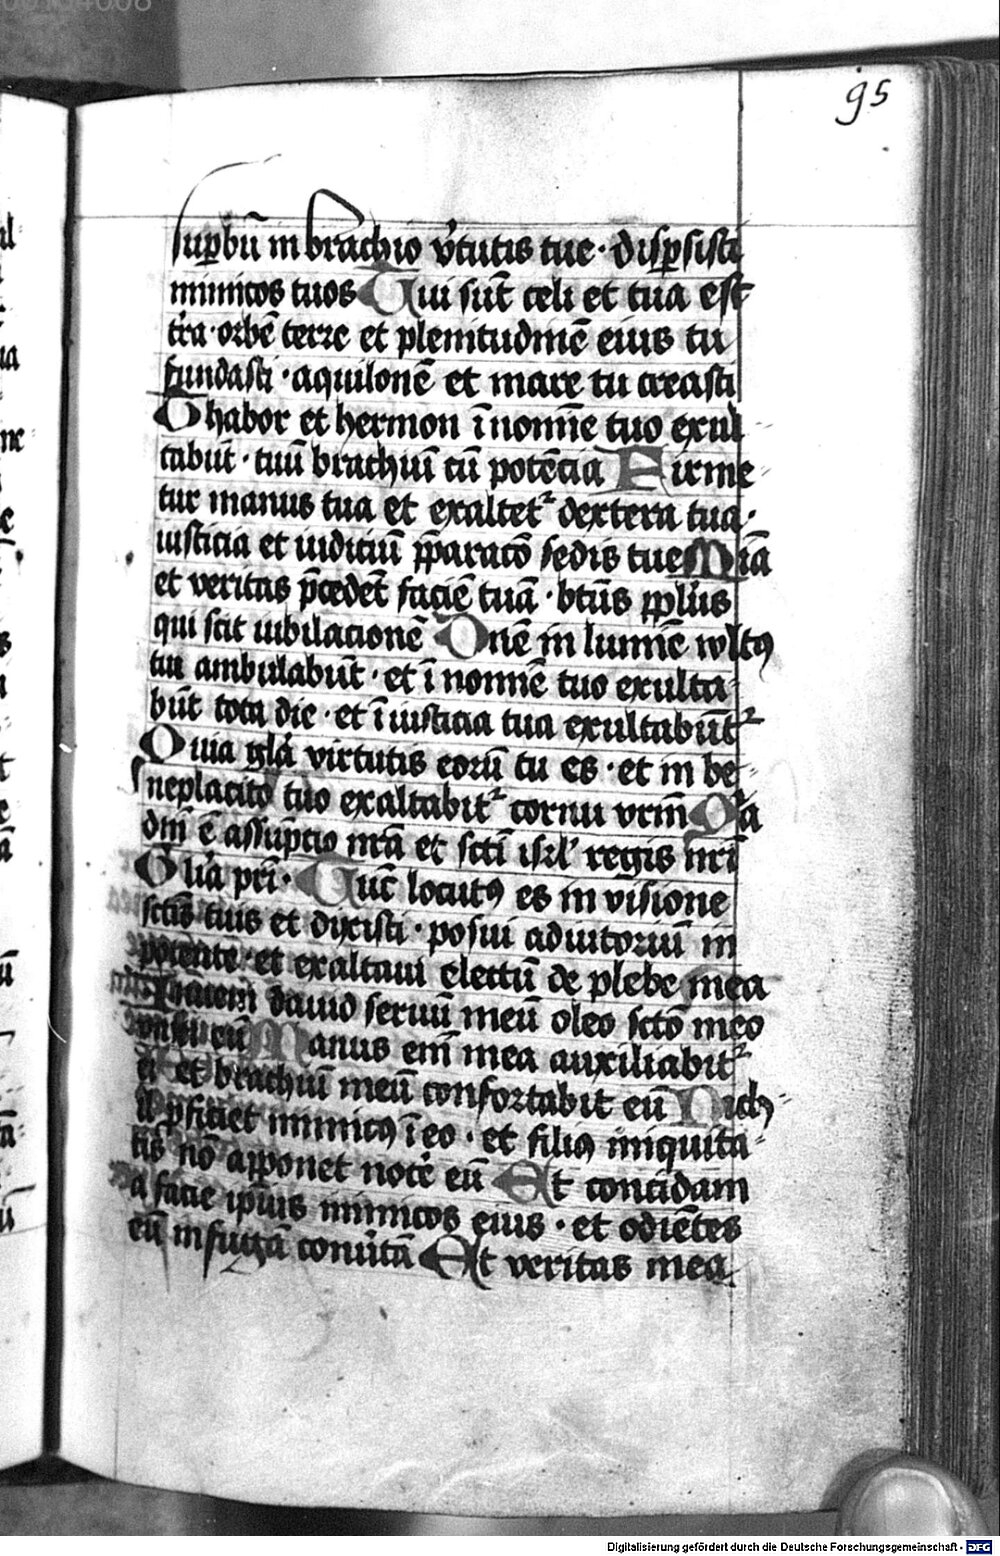 95
sup̲bū in brachio v̓tutis tue · disp̲sisti
inimicos tuos Tui sūt celi et tua est
tr̄a · orbē terre et plenitudinē eius tu
fundasti · aquilonē et mare tu creasti
Thabor et hermon ī nomīe tuo exul
tabūt · tuū brachiū cū potēcia Firme-
tur manus tua et exaltet᷑ dextera tua ·
iusticia et iudiciū p̄paracō sedis tue Mīa
et veritas p̄cedēt faciē tuā · btūs pp̲lūs
qui scit iubilacionē Dnē in lumīe wltꝯ
tui ambulabūt · et ī nomīe tuo exulta-
būt tota die · et ī iusticia tua exultabūt᷑
Quia gl̓a virtutis eorū tu es · et in be-
neplacito tuo exaltabit᷑ cornu nr̄m Qr̓a
dn̄i ē assūptio nr̄a et sctī isrl̓ regis nr̄i
Gl̓ia pr̄i · Tūc locutꝯ es in visione
sctīs tuis et dixisti · posui adiutoriū in
potente · et exaltaui electū de plebe mea
Inueni dauid seruū meū oleo sctō meo
vnxi eū Manus em̄ mea auxiliabit᷑
ei et brachiū meū confortabit eū Nich-
il p̲ficiet inimicꝯ ī eo · et filiꝯ iniquita-
tis nō apponet nocē eū Et concidam
a facie ipīus inimicos eius · et odiētes
eū in fugā conūtā Et veritas mea
Digitalisierung gefördert durch die Deutsche Forschungsgemeinschaft - DFG